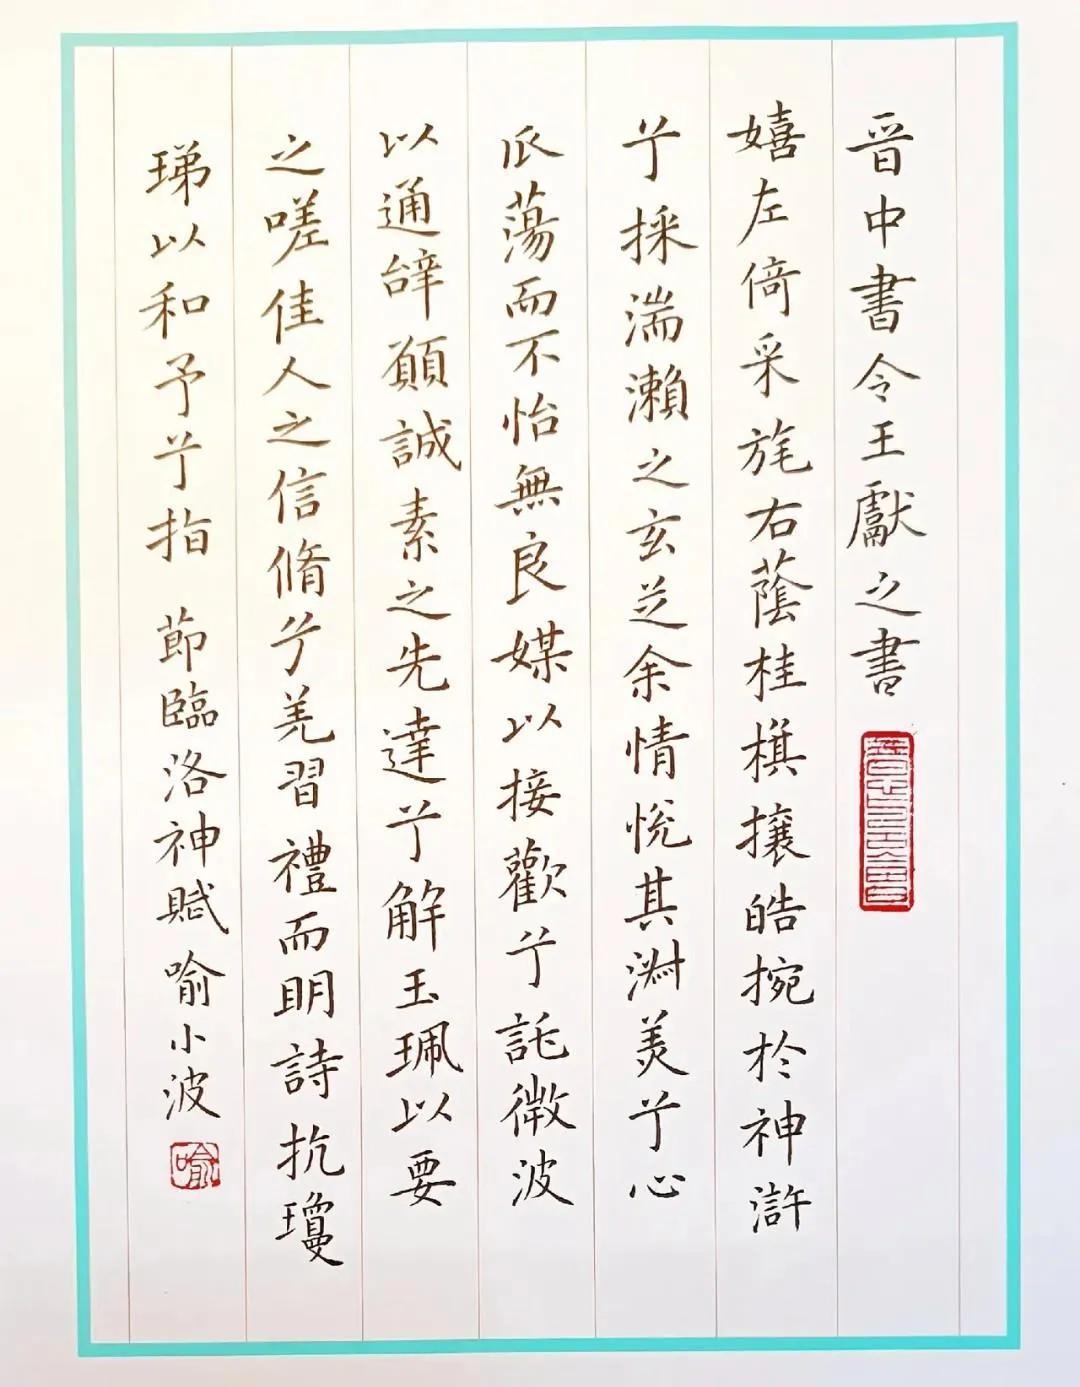 晉中書令王獻之書
嬉左倚采旄右蔭桂旗攘皓捥於神滸
兮採湍瀨之玄芝余情悅其淑美兮心
振蕩而不怡無良媒以接歡兮託微波
以通辭願誠素之先達兮解玉珮以要
之嗟佳人之信脩兮羌習禮而明詩抗瓊
珶以和予兮指 節臨洛神賦喻小波
喻